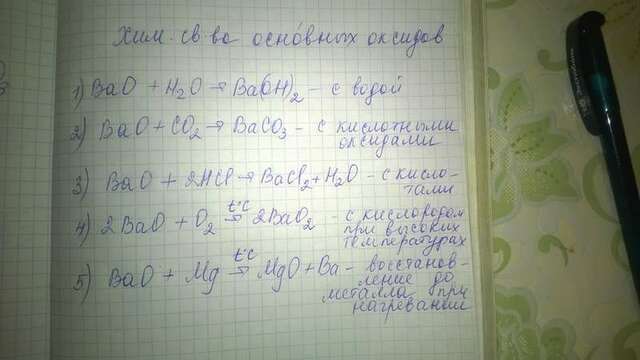 Хим. св-ва оснóвных оксидов
1) BaO + H₂O → Ba(OH)₂ - с водой
2) BaO + CO₂ → BaCO₃ - с кислотными
оксидами
3) BaO + 2HCl → BaCl₂ + H₂O - с кисло-
тами
4) 2BaO + O₂ t°C → 2BaO₂ - с кислородом
при высоких
температурах
5) BaO + Mg t°C → MgO + Ba - восстанов-
ление до
металла при
нагревании